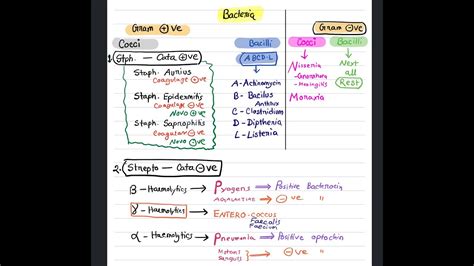 Bacteria
Gram +ve
Gram -ve
Cocci
Bacilli
Cocci
Bacilli
1. Stph. - Cata +ve
ABCD-L
Staph. Aurius
Coagulase +ve
Staph. Epidermitis
Coagulase -ve
Novo +ve
Staph. Saprophitis
Coagulan -ve
Novo -ve
A - Actinomycin
B - Bacilus
Anthrus
C - Clostridium
D - Diptheria
L - Listeria
Nisseria
- Gonorrhora
- Meningitis
Moraxia
Next
all
Rest
2. Strepto - Cata -ve
β - Haemolytics → Pyogens ⇒ Positive Bacterocin
AGALACTIAE ⇒ -ve "
γ - Haemolytics → ENTERO-COCCUS
Faecalis
Faecium
α - Haemolytics → Pneumonia ⇒ Positive optochin
Mutans
Sanguis
→ -ve "